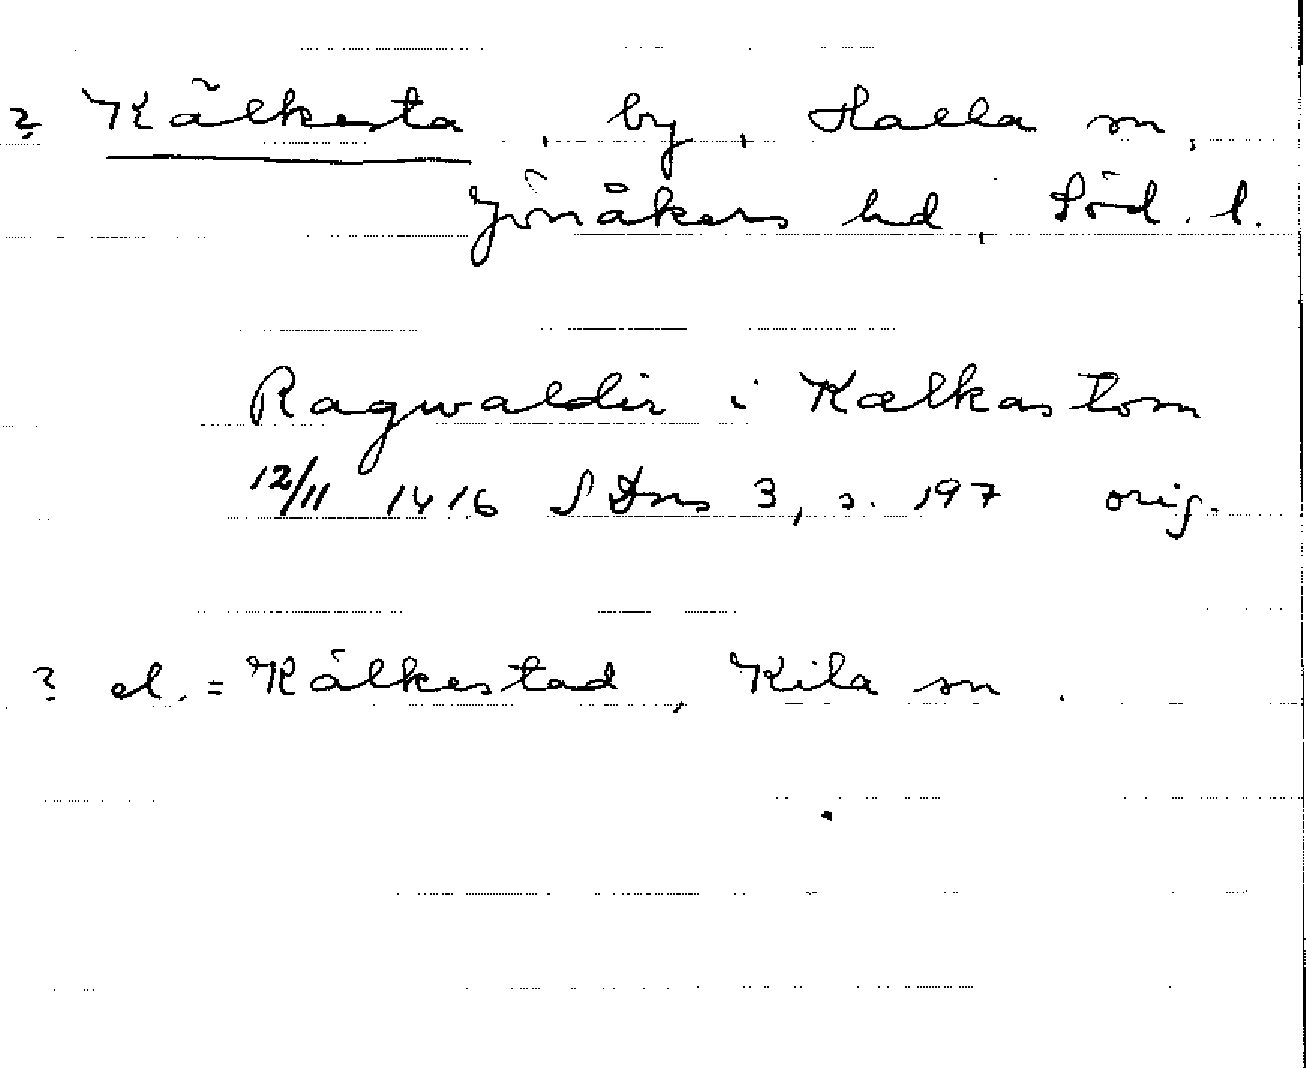 ? Kälkesta, by, Halla sn,
Jönåkers hd, Söd. l.
Ragwaldir i Kælkastom
12/11 1416 SDns 3, s. 197 orig.
? el. = Kälkestad, Kila sn.